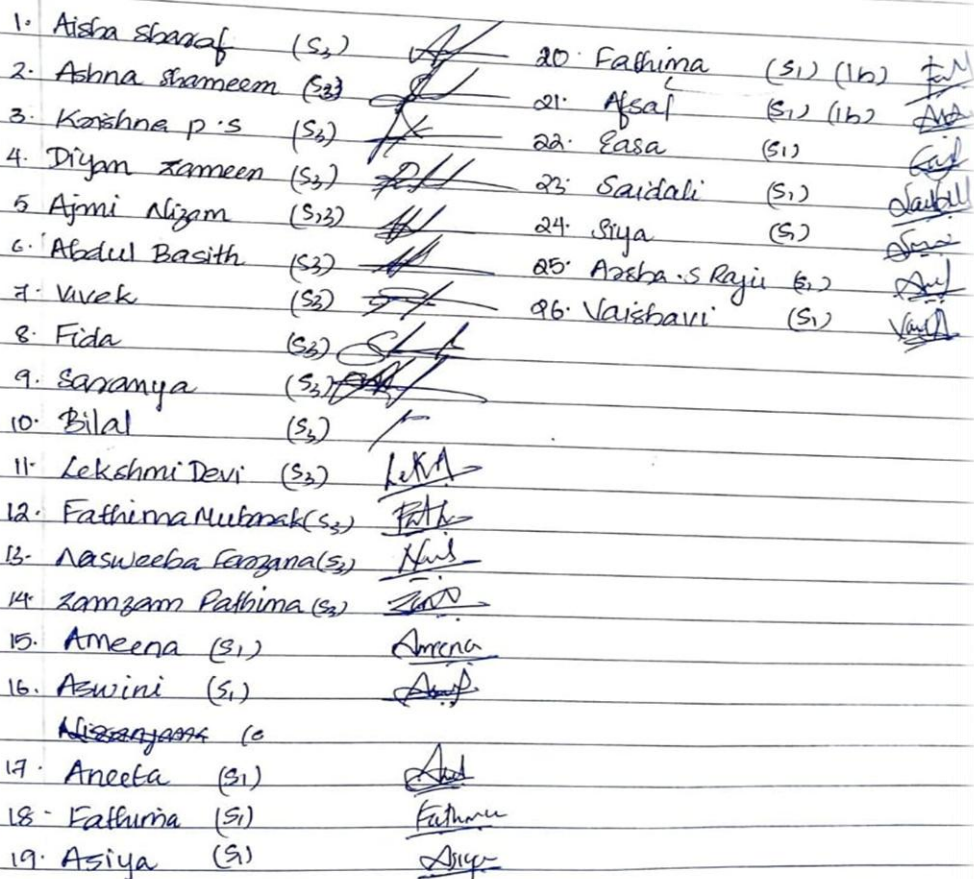 1. Aisha Sharaf (S3)
2. Ashna Shameem (S3)
3. Krishna P.S (S3)
4. Diyam Zameen (S3)
5 Ajmi Nizam (S3)
6. Abdul Basith (S3)
7. Vivek (S3)
8. Fida (S3)
9. Saranya (S3)
10. Bilal (S3)
11. Lekshmi Devi (S3) LekA
12. Fathima Mubarak (S3) Fath
13. Nasweeba Ferozana (S3)
14. Zamzam Fathima (S3)
15. Ameena (S1) Ameena
16. Aswini (S1)
17. Aneeta (S1)
18. Fathima (S1) Fathima
19. Asiya (S1) Asiya
20. Fathima (S1) (1h)
21. Afsal (S1) (1h)
22. Easa (S1)
23. Saidali (S1)
24. Siya (S1)
25. Arsha.S Raju (S1)
26. Vaishavi (S1)